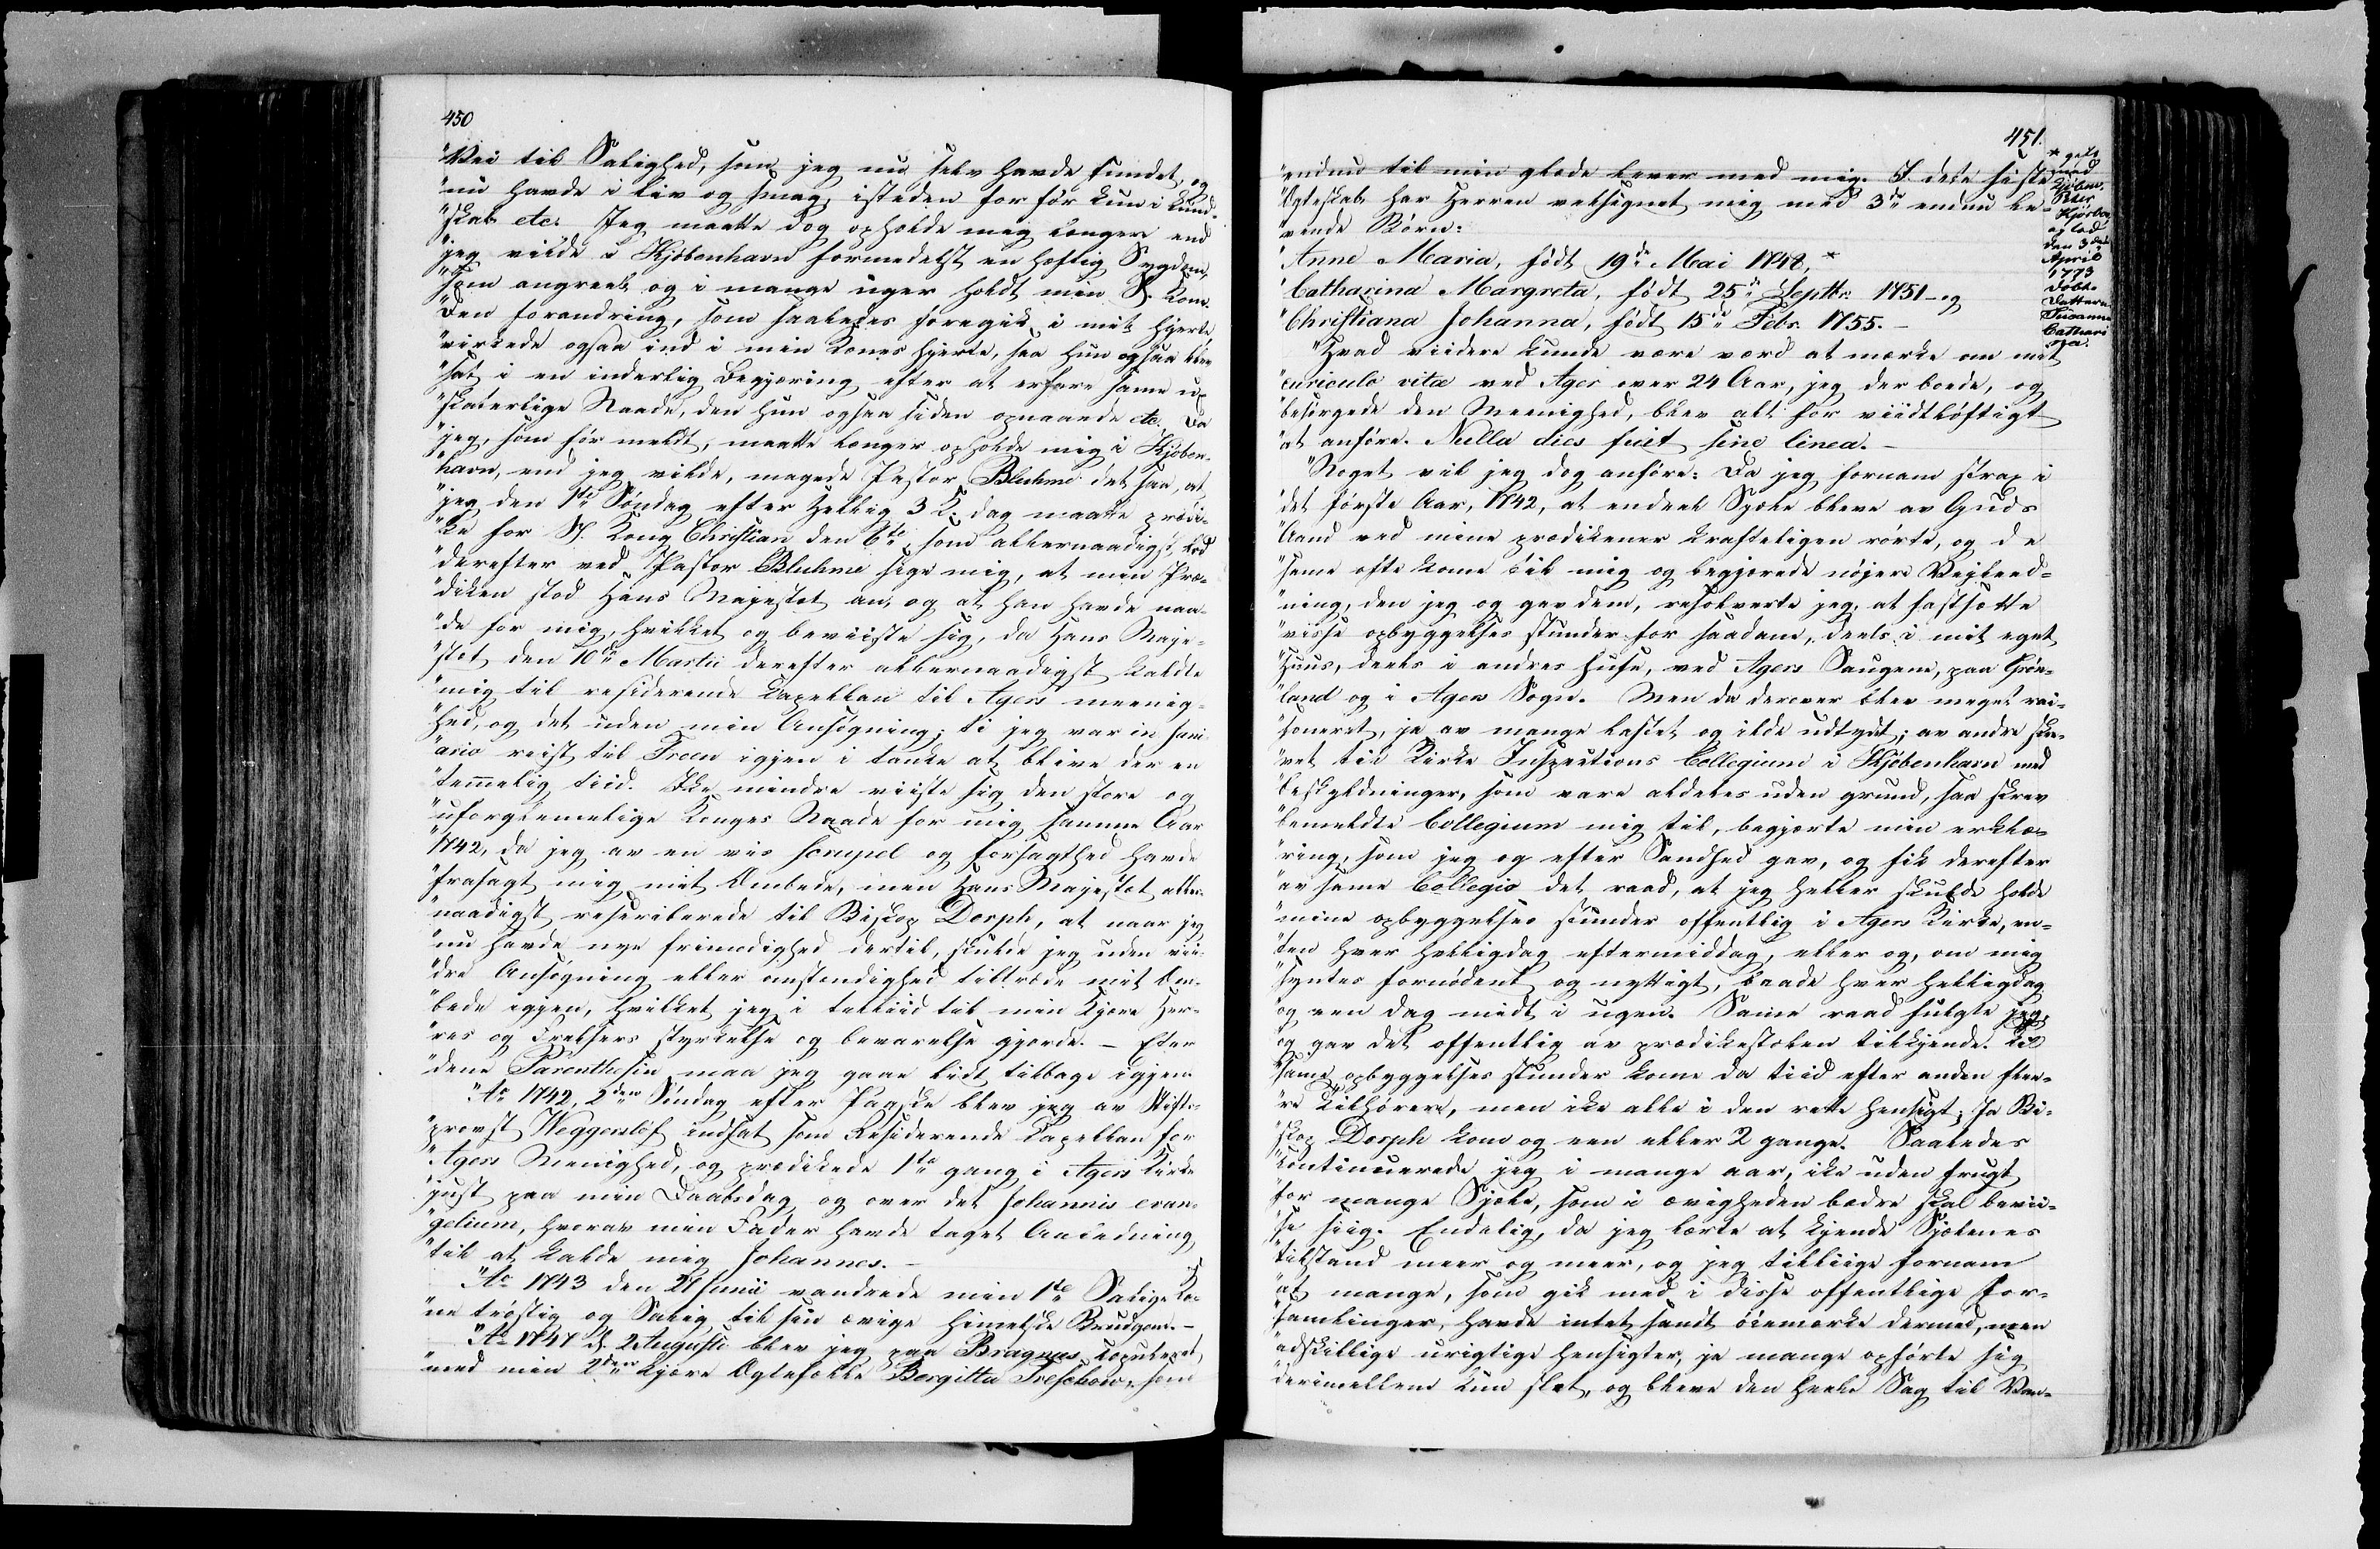 450
"Vei til Salighed, som jeg nu selv havde fundet, og
"nu havde i liv og smag, isteden for før kun i kund-
"skab etc. Jeg maatte dog opholde mig længere end
"jeg vilde i Kjöbenhavn formedelst en heftig Sygdom,
"som angreeb og i mange uger holdt min S. Kone.
"Den forandring, som saaledes foregik i mit hjerte
"virkede ogsaa ind i min Kones hjerte, saa hun ogsaa blev
"sat i en inderlig Begjæring efter at erfare samme u-
"skaterlige Naade, den hun ogsaa siden opnaaede etc. Da
"jeg, som før meldt, maatte længer opholde mig i Kjöben-
"havn, end jeg vilde, magede Pastor Bluhme det saa, at
"jeg den 1ste Søndag efter Hellig 3 K. dag maatte prædi-
"ke for S. Kong Christian den 6te, som allernaadigst lod
"derefter ved Pastor Bluhme sige mig, at min Præ-
"diken stod Hans Majestet an, og at han havde naa-
"de for mig, hvilket og beviiste sig, da Hans Maje-
"stet den 10de Martii derefter allernaadigst kaldte
"mig til residerende Capellan til Agers meenig-
"hed, og det uden min Ansøgning; ti jeg var in Janu-
"ario reist til Froen igjen i tanke at blive der en
"temmelig tiid. Ike mindre viiste sig den store og
"uforglemmelige Konges Naade for mig samme Aar
"1742, da jeg av en vis scrupel og forsagthed havde
"frasagt mig mit Embede, men Hans Majestet aller-
"naadigst rescriberede til Biskop Dorph, at naar jeg
"nu havde nye frimodighed dertil, skulde jeg uden vii-
"dre Ansøgning eller omstendighed tiltræde mit Em-
"bede igjen, hvilket jeg i tilliid til min Kjære Her-
"res og Frelsers styrkelse og bevarelse gjorde. – Efter
"denne Parenthesin maa jeg gaae lidt tilbage igjen.
"Ao 1742, 2den Söndag efter Paaske blev jeg av Stifts-
"provst Weggersløf indsat som Residerende Capellan for
"Agers Menighed, og prædikede 1ste gang i Agers Kirke
"just paa min Daabsdag og over det Johannis evan-
"gelium, hvorav min Fader havde taget Anledning
"til at kalde mig Johannes. –
"Ao 1743 den 21 Junii vandrede min 1ste Salige Ko-
"ne trøstig og Salig til sin evige himmelske Brudgom. –
"Ao 1747 d. 2 Augusti blev jeg paa Bragnæs copuleret
"med min 2den kjære Ægtefælle Bergitta Treschow, som
451.
"endnu til min glæde lever med mig. I dete siste
"Egteskab har Herren velsignet mig med 3de endnu le-
"vende Börn:
"Anne Maria, født 19de Mai 1748, *
"Catharina Margreta, født 25de Septbr 1751 – og
"Christiana Johanna, født 15de Febr. 1755. –
"Hvad viidere kunde være værd at mærke om mit
"curiculo vitæ ved Ager over 24 Aar, jeg der boede, og
"besørgede den Meenighed, blev alt for viidtløftigt
"at anføre. Nulla dies fuit sine linea. –
"Noget vil jeg dog anføre: Da jeg fornam strax i
"det første Aar, 1742, at endeel Sjæle bleve av Guds
"Aand ved mine prædikener krafteligen rørte, og de
"same ofte kome til mig og begjærede nøjere Vejleed-
"ning, den jeg og gav dem, resolverte jeg, at fastsætte
"visse opbyggelses stunder for saadane, deels i mit eget
"Huus, deels i andres huse, ved Agers Saugene, paa Grøn-
"land og i Agers Sogn. Men da derover blev meget rai-
"soneret, ja av mange lastet og ilde udtydt; av andre skre-
"vet til Kirke Inspections Collegium i Kjöbenhavn med
"beskyldninger, som vare aldeles uden grund, saa skrev
"bemeldte Collegium mig til, begjærte min erklæ-
"ring, som jeg og efter Sandhed gav, og fik derefter
"av same Collegio det raad, at jeg heller skulde holde
"mine opbyggelses stunder offentlig i Agers Kirke, en-
"ten hver helligdag eftermiddag, eller og, om mig
"syntes fornødent og nyttigt, baade hver helligdag
"og een dag midt i ugen. Same raad fulgte jeg,
"og gav det offentlig av prædikestolen tilkjende. Til
"same opbyggelses stunder kome da tiid efter anden flee-
"re Tilhørere, men ike alle i den rette hensigt; Ja Bi-
"skop Dorph kom og een eller 2 gange. Saaledes
"continuerede jeg i mange aar, ike uden frugt
"for mange Sjæle, som i ævigheden bedre skal bevii-
"se siig. Endelig, da jeg lærte at kjende Sjælenes
"tilstand meer og meer, og jeg tilliige fornam
"at mange, som gik med i disse offentlige for-
"samlinger, havde intet sandt øiemærke dermed, men
"adskillige urigtige hensigter, ja mange opførte sig
"derimellem kun slet, og bleve den heele Sag til Van-
* gift
med
Kjöbm.
Peter
Kjörboe
og lod
den 3die
April
1773
döbe
Datteren
Susanna
Cathari
na.